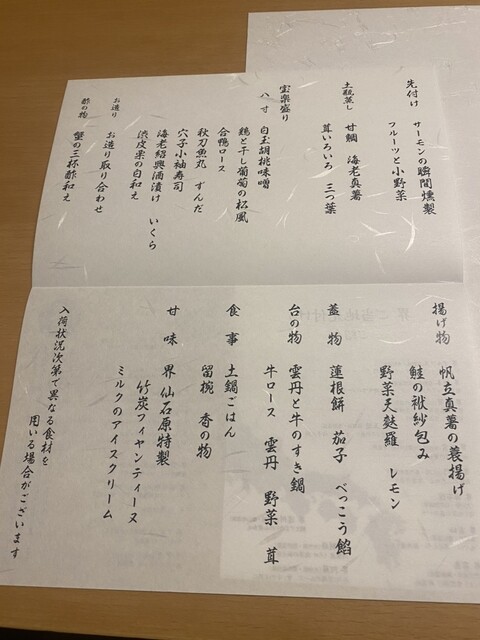 先付け サーモンの瞬間燻製
フルーツと小野菜
土瓶蒸し 甘鯛 海老真薯
茸いろいろ 三つ葉
宝楽盛り
八寸 白玉胡桃味噌
鶏と干し葡萄の松風
合鴨ロース
秋刀魚丸 ずんだ
穴子小袖寿司
海老紹興酒漬け いくら
渋皮栗の白和え
お造り お造り取り合わせ
酢の物 蟹の三杯酢和え
揚げ物 帆立真薯の蓑揚げ
鮭の袱紗包み
野菜天麩羅 レモン
蓋物 蓮根餅 茄子 べっこう餡
台の物 雲丹と牛のすき鍋
牛ロース 雲丹 野菜 茸
食事 土鍋ごはん
留椀 香の物
甘味 界 仙石原特製
竹炭フィヤンティーヌ
ミルクのアイスクリーム
入荷状況次第で異なる食材を
用いる場合がございます